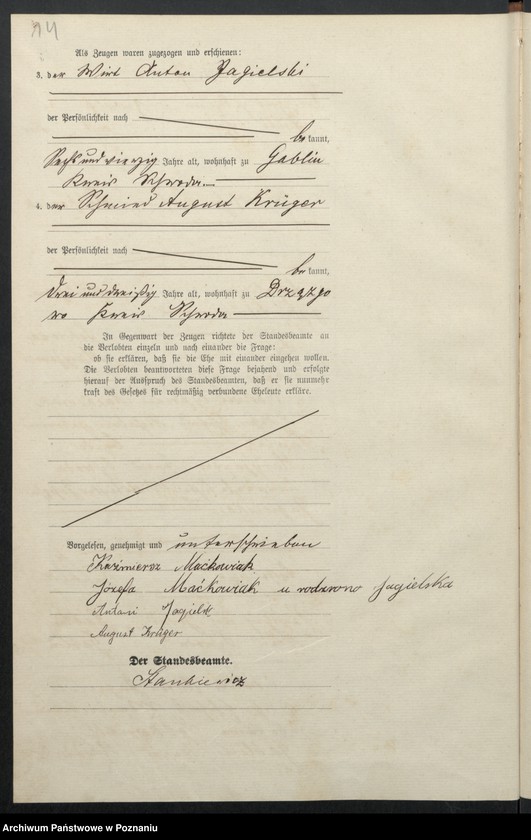 Als Zeugen waren zugezogen und erschienen:
3. der Wirt Anton Jagielski
der Persönlichkeit nach
bekannt,
Sechs und vierzig Jahre alt, wohnhaft zu Gablin
Kreis Schroda
4. der Schmied August Krüger
der Persönlichkeit nach
bekannt,
drei und dreißig Jahre alt, wohnhaft zu Drzązgo
wo Kreis Schroda
In Gegenwart der Zeugen richtete der Standesbeamte an
die Verlobten einzeln und nach einander die Frage:
ob sie erklären, daß sie die Ehe mit einander eingehen wollen.
Die Verlobten beantworteten diese Frage bejahend und erfolgte
hierauf der Ausspruch des Standesbeamten, daß er sie nunmehr
kraft des Gesetzes für rechtmäßig verbundene Eheleute erkläre.
Vorgelesen, genehmigt und unterschrieben
Kazimierz Maćkowiak
Józefa Maćkowiak u rodzono Jagielska
Antoni
August Krüger
Der Standesbeamte.
Stankiewicz
Archiwum Państwowe w Poznaniu